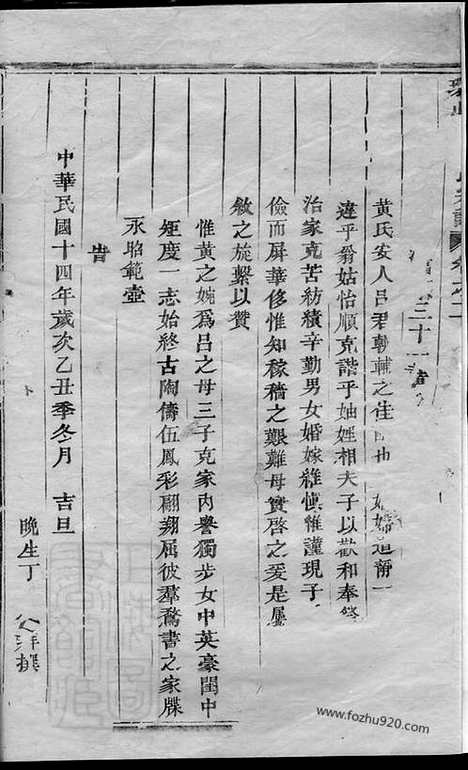 三十一
黃氏安人呂君朝輔之佳 也 婦道靜一
違乎翁姑怡順克諧乎妯娌相夫子以歡和奉
治家克苦紡績辛勤男女婚嫁維慎惟謹現子
儉而屏華侈惟知稼穡之艱難母實啓之爰是屬
敘之旋繫以贊
惟黃之婉爲呂之母三子克家內譽獨步女中英豪閨中
矩度一志始終古陶儔伍鳳彩翩翔屈彼羣鶩書之家牒
永昭範壼
旹
中華民國十四年歲次乙丑季冬月 吉旦
晚生丁 拜撰
www.fozhu920.com